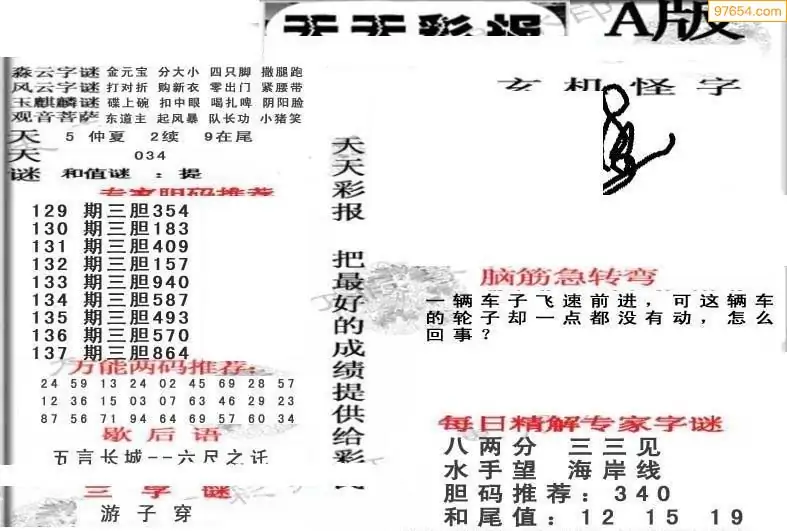 天天彩报
A版
97654.com
森云字谜 金元宝 分大小 四只脚 撒腿跑
风云字谜 打对折 购新衣 零出门 紧腰带
玉麒麟谜 碟上碗 扣中眼 喝扎啤 阴阳脸
观音菩萨 东道主 起风暴 队长功 小猪笑
天 5 仲夏 2续 9在尾
天 034
谜 和值谜 : 提
专家胆码推荐
129 期三胆354
130 期三胆183
131 期三胆409
132 期三胆157
133 期三胆940
134 期三胆587
135 期三胆493
136 期三胆570
137 期三胆864
万能两码推荐:
24 59 13 24 02 45 69 28 57
12 36 15 03 07 63 46 29 23
87 56 71 94 64 69 57 60 34
歇后语
五言长城--六尺之讬
三字谜
游子穿
天天彩报 把最好的成绩提供给彩民
玄机怪字
脑筋急转弯
一辆车子飞速前进，可这辆车
的轮子却一点都没有动，怎么
回事？
每日精解专家字谜
八两分 三三见
水手望 海岸线
胆码推荐: 340
和尾值: 12 15 19